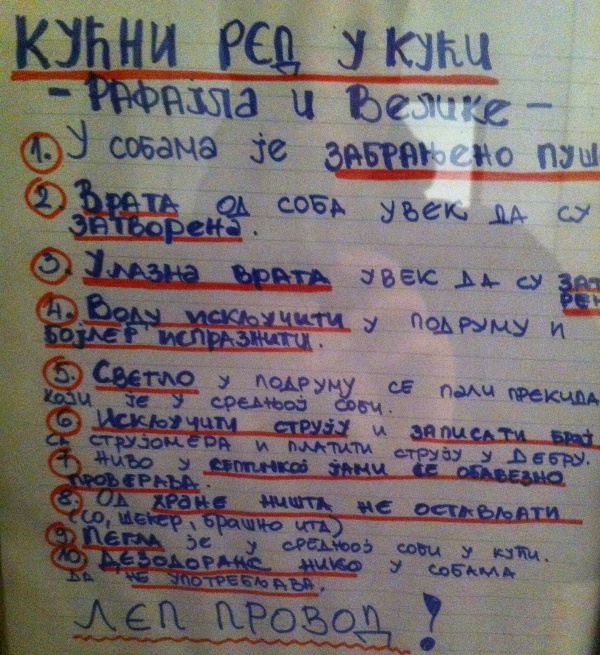 КУЋНИ РЕД У КУЋИ
- РАФАЈЛА И ВЕЛИКЕ -
1. У СОБАМА ЈЕ ЗАБРАЊЕНО ПУШ
2. ВРАТА ОД СОБА УВЕК ДА СУ
ЗАТВОРЕНА.
3. УЛАЗНА ВРАТА УВЕК ДА СУ ЗАТ
РЕН
4. ВОДУ ИСКЉУЧИТИ У ПОДРУМУ И
БОЈЛЕР ИСПРАЗНИТИ.
5. СВЕТЛО У ПОДРУМУ СЕ ПАЛИ ПРЕКИДА
КОЈИ ЈЕ У СРЕДЊОЈ СОБИ.
6 ИСКЉУЧИТИ СТРУЈУ И ЗАПИСАТИ БРОЈ
СА СТРУЈОМЕРА И ПЛАТИТИ СТРУЈУ У ДЕБРУ.
7. НИВО У СЕПТИЧКОЈ ЈАМИ СЕ ОБАВЕЗНО
ПРОВЕРАВА.
8. ОД ХРАНЕ НИШТА НЕ ОСТАВЉАТИ
(СО, ШЕЋЕР, БРАШНО ИТД)
9. ПЕГЛА ЈЕ У СРЕДЊОЈ СОБИ У КУЋИ.
10. ДЕЗОДОРАНС НИКО У СОБАМА
ДА НЕ УПОТРЕБЉАВА.
ЛЕП ПРОВОД!